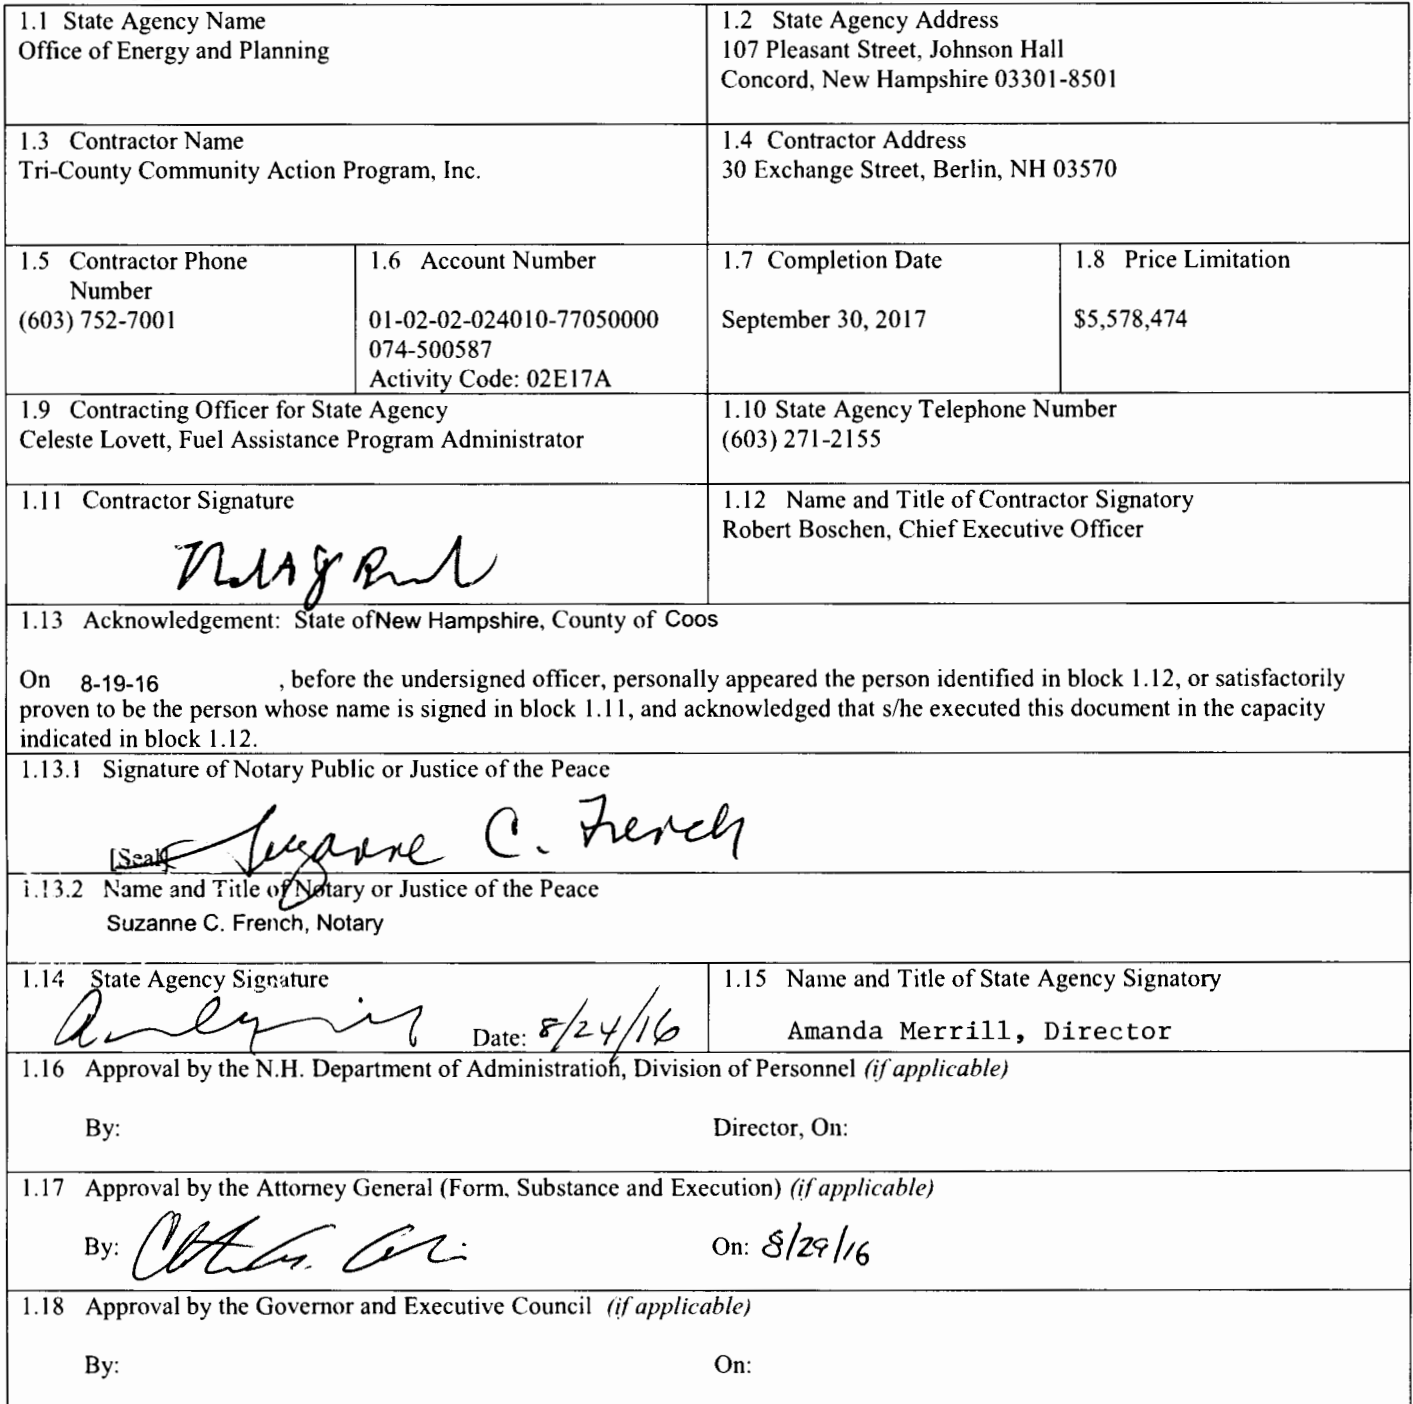 1.1 State Agency Name
Office of Energy and Planning
1.2 State Agency Address
107 Pleasant Street, Johnson Hall
Concord, New Hampshire 03301-8501
1.3 Contractor Name
Tri-County Community Action Program, Inc.
1.4 Contractor Address
30 Exchange Street, Berlin, NH 03570
1.5 Contractor Phone
Number
(603) 752-7001
1.6 Account Number
01-02-02-024010-77050000
074-500587
Activity Code: 02E17A
1.7 Completion Date
September 30, 2017
1.8 Price Limitation
$5,578,474
1.9 Contracting Officer for State Agency
Celeste Lovett, Fuel Assistance Program Administrator
1.10 State Agency Telephone Number
(603) 271-2155
1.11 Contractor Signature
1.12 Name and Title of Contractor Signatory
Robert Boschen, Chief Executive Officer
1.13 Acknowledgement: State of New Hampshire, County of Coos
On 8-19-16 , before the undersigned officer, personally appeared the person identified in block 1.12, or satisfactorily
proven to be the person whose name is signed in block 1.11, and acknowledged that s/he executed this document in the capacity
indicated in block 1.12.
1.13.1 Signature of Notary Public or Justice of the Peace
[Seal] Suzanne C. French
1.13.2 Name and Title of Notary or Justice of the Peace
Suzanne C. French, Notary
1.14 State Agency Signature
Date: 8/24/16
1.15 Name and Title of State Agency Signatory
Amanda Merrill, Director
1.16 Approval by the N.H. Department of Administration, Division of Personnel (if applicable)
By: Director, On:
1.17 Approval by the Attorney General (Form, Substance and Execution) (if applicable)
By: On: 8/29/16
1.18 Approval by the Governor and Executive Council (if applicable)
By: On: